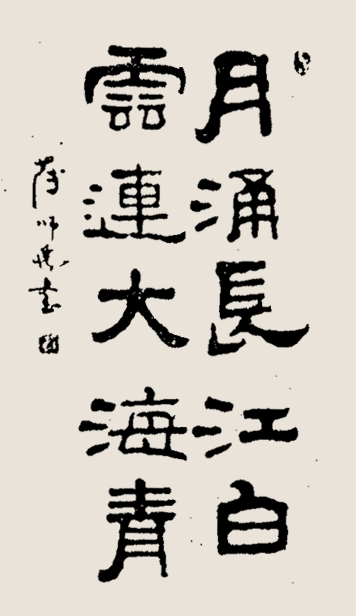 月涌長江白
雲連大海青